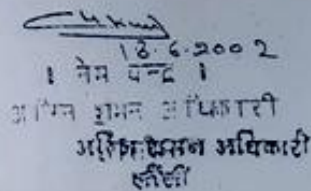 18.6.2002
। नेम चन्द्र ।
अग्नि शमन अधिकारी
अग्नि शमन अधिकारी
झाँसी